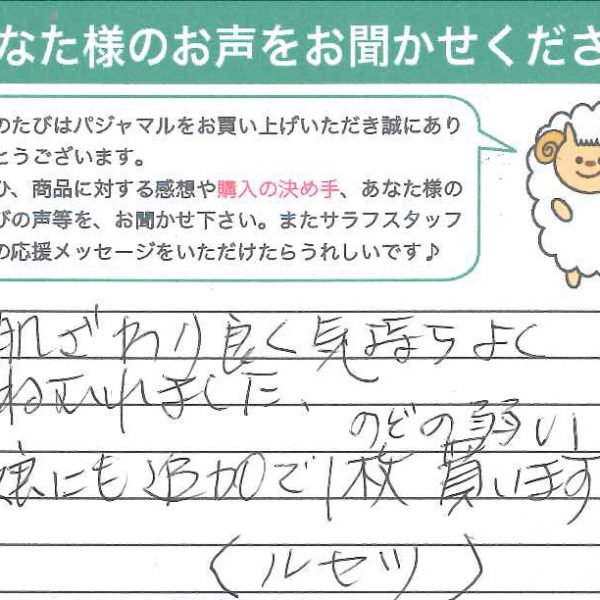 なた様のお声をお聞かせくださ
のたびはパジャマルをお買い上げいただき誠にあり
とうございます。
ひ、商品に対する感想や購入の決め手、あなた様の
びの声等を、お聞かせ下さい。またサラフスタッフ
の応援メッセージをいただけたらうれしいです♪
肌ざわり良く気持ちよく
ねむれました、
のどの弱い
娘にも追加で1枚買います
(ルセツ)